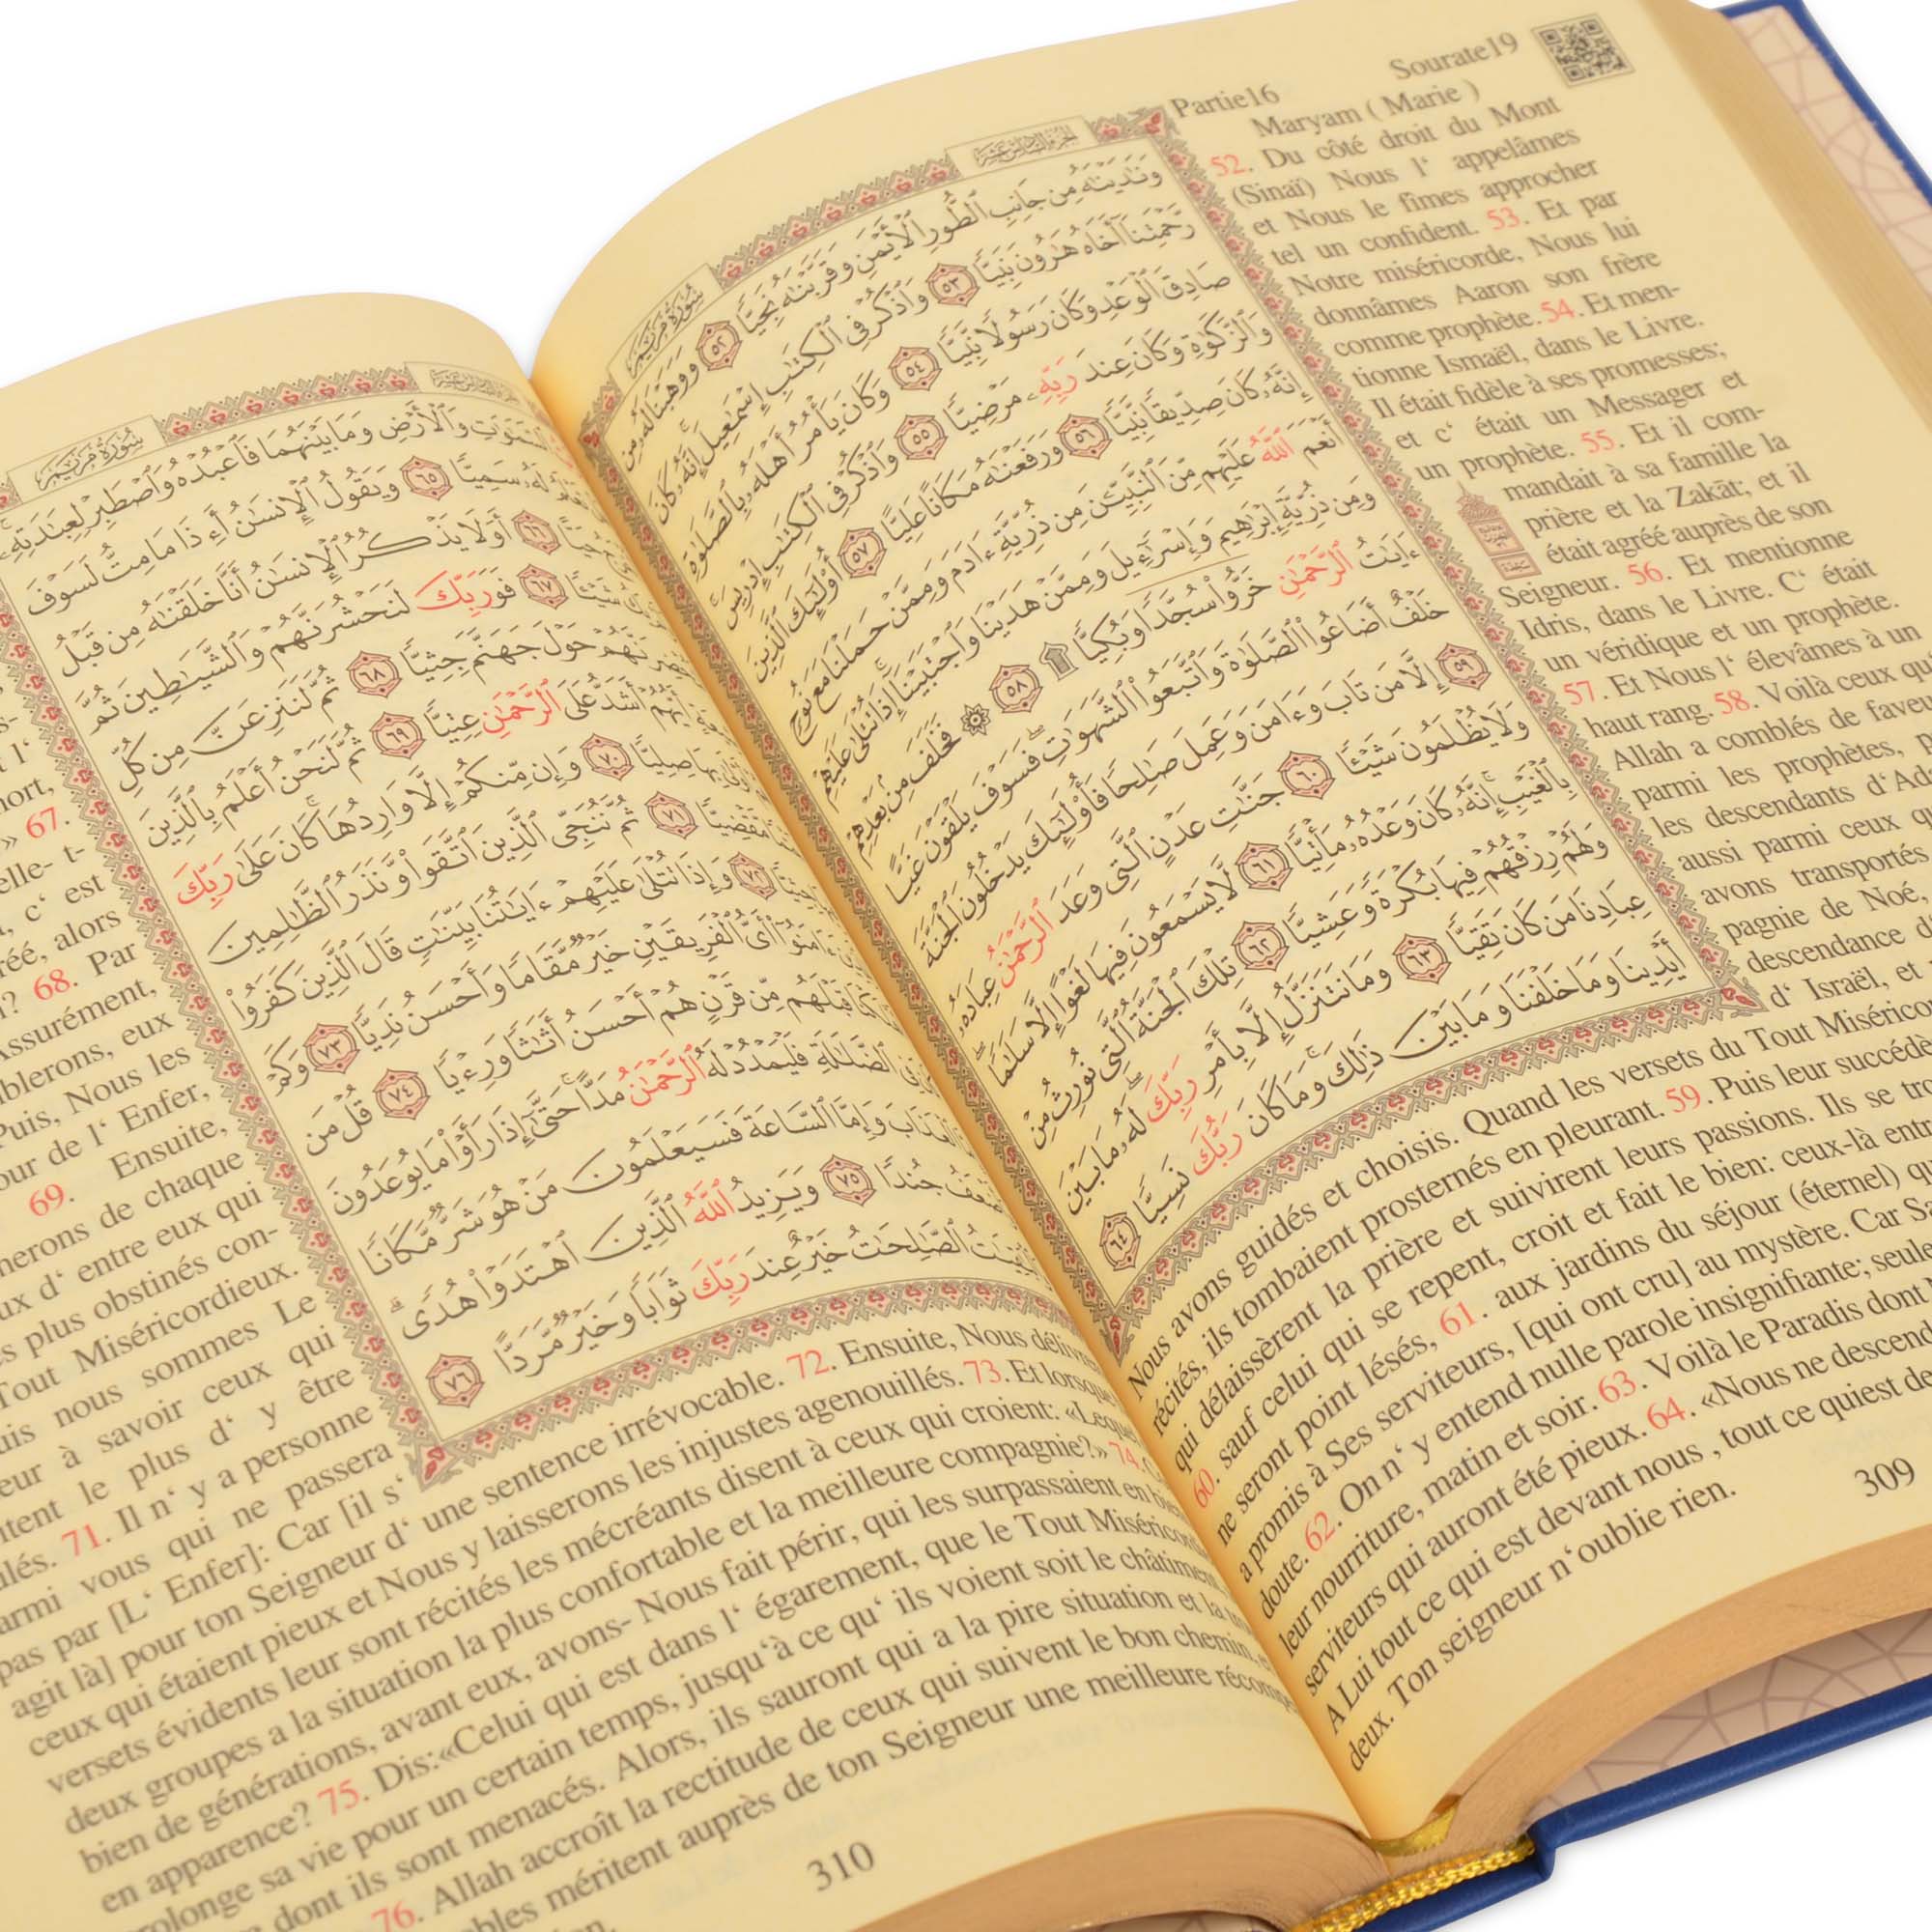 Sourate19
Partie16
Maryam ( Marie )
52. Du côté droit du Mont
(Sinaï) Nous l‘ appelâmes
et Nous le fîmes approcher
tel un confident. 53. Et par
Notre miséricorde, Nous lui
donnâmes Aaron son frère
comme prophète. 54. Et men-
tionne Ismaël, dans le Livre.
Il était fidèle à ses promesses;
et c‘ était un Messager et
un prophète. 55. Et il com-
mandait à sa famille la
prière et la Zakāt; et il
était agréé auprès de son
Seigneur. 56. Et mentionne
Idris, dans le Livre. C‘ était
un véridique et un prophète.
57. Et Nous l‘ élevâmes à un
haut rang. 58. Voilà ceux
Allah a comblés de
parmi les prophètes,
les descendants
aussi parmi ceux
avons transportés
pagnie de Noé,
descendance
d‘ Israël, et
Nous avons guidés et choisis. Quand les versets du Tout
récités, ils tombaient prosternés en pleurant. 59. Puis leur
qui délaissèrent la prière et suivirent leurs passions. Ils se
60. sauf celui qui se repent, croit et fait le bien: ceux-là
ne seront point lésés, 61. aux jardins du séjour (éternel)
a promis à Ses serviteurs, [qui ont cru] au mystère. Car
doute. 62. On n‘ y entend nulle parole insignifiante;
leur nourriture, matin et soir. 63. Voilà le Paradis dont
serviteurs qui auront été pieux. 64. «Nous ne
A Lui tout ce qui est devant nous , tout ce quiest
deux. Ton seigneur n‘oublie rien.
309
سُورَةُ مَرْيَم
وَنَٰدَيْنَٰهُ مِن جَانِبِ ٱلطُّورِ ٱلْأَيْمَنِ وَقَرَّبْنَٰهُ نَجِيًّا ٥٢ وَوَهَبْنَا لَهُۥ مِن
رَّحْمَتِنَآ أَخَاهُ هَٰرُونَ نَبِيًّا ٥٣ وَٱذْكُرْ فِى ٱلْكِتَٰبِ إِسْمَٰعِيلَ إِنَّهُۥ كَانَ
صَادِقَ ٱلْوَعْدِ وَكَانَ رَسُولًا نَّبِيًّا ٥٤ وَكَانَ يَأْمُرُ أَهْلَهُۥ بِٱلصَّلَوٰةِ
وَٱلزَّكَوٰةِ وَكَانَ عِندَ رَبِّهِۦ مَرْضِيًّا ٥٥ وَٱذْكُرْ فِى ٱلْكِتَٰبِ إِدْرِيسَ
إِنَّهُۥ كَانَ صِدِّيقًا نَّبِيًّا ٥٦ وَرَفَعْنَٰهُ مَكَانًا عَلِيًّا ٥٧ أُو۟لَٰٓئِكَ ٱلَّذِينَ
أَنْعَمَ ٱللَّهُ عَلَيْهِم مِّنَ ٱلنَّبِيِّۦنَ مِن ذُرِّيَّةِ ءَادَمَ وَمِمَّنْ حَمَلْنَا مَعَ نُوحٍ
وَمِن ذُرِّيَّةِ إِبْرَٰهِيمَ وَإِسْرَٰٓءِيلَ وَمِمَّنْ هَدَيْنَا وَٱجْتَبَيْنَآ إِذَا تُتْلَىٰ عَلَيْهِمْ
ءَايَٰتُ ٱلرَّحْمَٰنِ خَرُّوا۟ سُجَّدًا وَبُكِيًّا ۩ ٥٨ ۞ فَخَلَفَ مِنۢ بَعْدِهِمْ
خَلْفٌ أَضَاعُوا۟ ٱلصَّلَوٰةَ وَٱتَّبَعُوا۟ ٱلشَّهَوَٰتِ فَسَوْفَ يَلْقَوْنَ غَيًّا
٥٩ إِلَّا مَن تَابَ وَءَامَنَ وَعَمِلَ صَٰلِحًا فَأُو۟لَٰٓئِكَ يَدْخُلُونَ ٱلْجَنَّةَ
وَلَا يُظْلَمُونَ شَيْـًٔا ٦٠ جَنَّٰتِ عَدْنٍ ٱلَّتِى وَعَدَ ٱلرَّحْمَٰنُ عِبَادَهُۥ
بِٱلْغَيْبِ إِنَّهُۥ كَانَ وَعْدُهُۥ مَأْتِيًّا ٦١ لَّا يَسْمَعُونَ فِيهَا لَغْوًا إِلَّا سَلَٰمًا
وَلَهُمْ رِزْقُهُمْ فِيهَا بُكْرَةً وَعَشِيًّا ٦٢ تِلْكَ ٱلْجَنَّةُ ٱلَّتِى نُورِثُ مِنْ
عِبَادِنَا مَن كَانَ تَقِيًّا ٦٣ وَمَا نَتَنَزَّلُ إِلَّا بِأَمْرِ رَبِّكَ لَهُۥ مَا بَيْنَ
أَيْدِينَا وَمَا خَلْفَنَا وَمَا بَيْنَ ذَٰلِكَ وَمَا كَانَ رَبُّكَ نَسِيًّا ٦٤
سُورَةُ مَرْيَم
وَٱلْأَرْضِ وَمَا بَيْنَهُمَا فَٱعْبُدْهُ وَٱصْطَبِرْ لِعِبَٰدَتِهِۦ
لَهُۥ سَمِيًّا ٦٥ وَيَقُولُ ٱلْإِنسَٰنُ أَءِذَا مَا مِتُّ لَسَوْفَ
٦٦ أَوَلَا يَذْكُرُ ٱلْإِنسَٰنُ أَنَّا خَلَقْنَٰهُ مِن قَبْلُ
شَيْـًٔا ٦٧ فَوَرَبِّكَ لَنَحْشُرَنَّهُمْ وَٱلشَّيَٰطِينَ ثُمَّ
حَوْلَ جَهَنَّمَ جِثِيًّا ٦٨ ثُمَّ لَنَنزِعَنَّ مِن كُلِّ
أَيُّهُمْ أَشَدُّ عَلَى ٱلرَّحْمَٰنِ عِتِيًّا ٦٩ ثُمَّ لَنَحْنُ أَعْلَمُ بِٱلَّذِينَ
بِهَا صِلِيًّا ٧٠ وَإِن مِّنكُمْ إِلَّا وَارِدُهَا كَانَ عَلَىٰ رَبِّكَ
مَّقْضِيًّا ٧١ ثُمَّ نُنَجِّى ٱلَّذِينَ ٱتَّقَوا۟ وَّنَذَرُ ٱلظَّٰلِمِينَ
٧٢ وَإِذَا تُتْلَىٰ عَلَيْهِمْ ءَايَٰتُنَا بَيِّنَٰتٍ قَالَ ٱلَّذِينَ كَفَرُوا۟
أَىُّ ٱلْفَرِيقَيْنِ خَيْرٌ مَّقَامًا وَأَحْسَنُ نَدِيًّا ٧٣ وَكَمْ
قَبْلَهُم مِّن قَرْنٍ هُمْ أَحْسَنُ أَثَٰثًا وَرِءْيًا ٧٤ قُلْ مَن
ٱلضَّلَٰلَةِ فَلْيَمْدُدْ لَهُ ٱلرَّحْمَٰنُ مَدًّا حَتَّىٰٓ إِذَا رَأَوْا۟ مَا يُوعَدُونَ
وَإِمَّا ٱلسَّاعَةَ فَسَيَعْلَمُونَ مَنْ هُوَ شَرٌّ مَّكَانًا
جُندًا ٧٥ وَيَزِيدُ ٱللَّهُ ٱلَّذِينَ ٱهْتَدَوْا۟ هُدًى
ٱلصَّٰلِحَٰتُ خَيْرٌ عِندَ رَبِّكَ ثَوَابًا وَخَيْرٌ مَّرَدًّا ٧٦
» 67.
c‘ est
alors
68. Par
eux
Puis, Nous les
de l‘ Enfer,
69. Ensuite,
de chaque
d‘ entre eux qui
plus obstinés con-
Tout Miséricordieux.
nous sommes Le
à savoir ceux qui
le plus d‘ y être
71. Il n‘ y a personne
vous qui ne passera
pas par [L‘ Enfer]: Car [il s‘
agit là] pour ton Seigneur d‘ une sentence irrévocable. 72. Ensuite, Nous
ceux qui étaient pieux et Nous y laisserons les injustes agenouillés. 73. Et lorsque
versets évidents leur sont récités les mécréants disent à ceux qui croient:
deux groupes a la situation la plus confortable et la meilleure compagnie?» 74.
bien de générations, avant eux, avons- Nous fait périr, qui les surpassaient en
en apparence? 75. Dis:«Celui qui est dans l‘ égarement, que le Tout
sa vie pour un certain temps, jusqu‘à ce qu‘ ils voient soit le châtiment
dont ils sont menacés. Alors, ils sauront qui a la pire situation et la
76. Allah accroît la rectitude de ceux qui suivent le bon chemin,
méritent auprès de ton Seigneur une meilleure
310